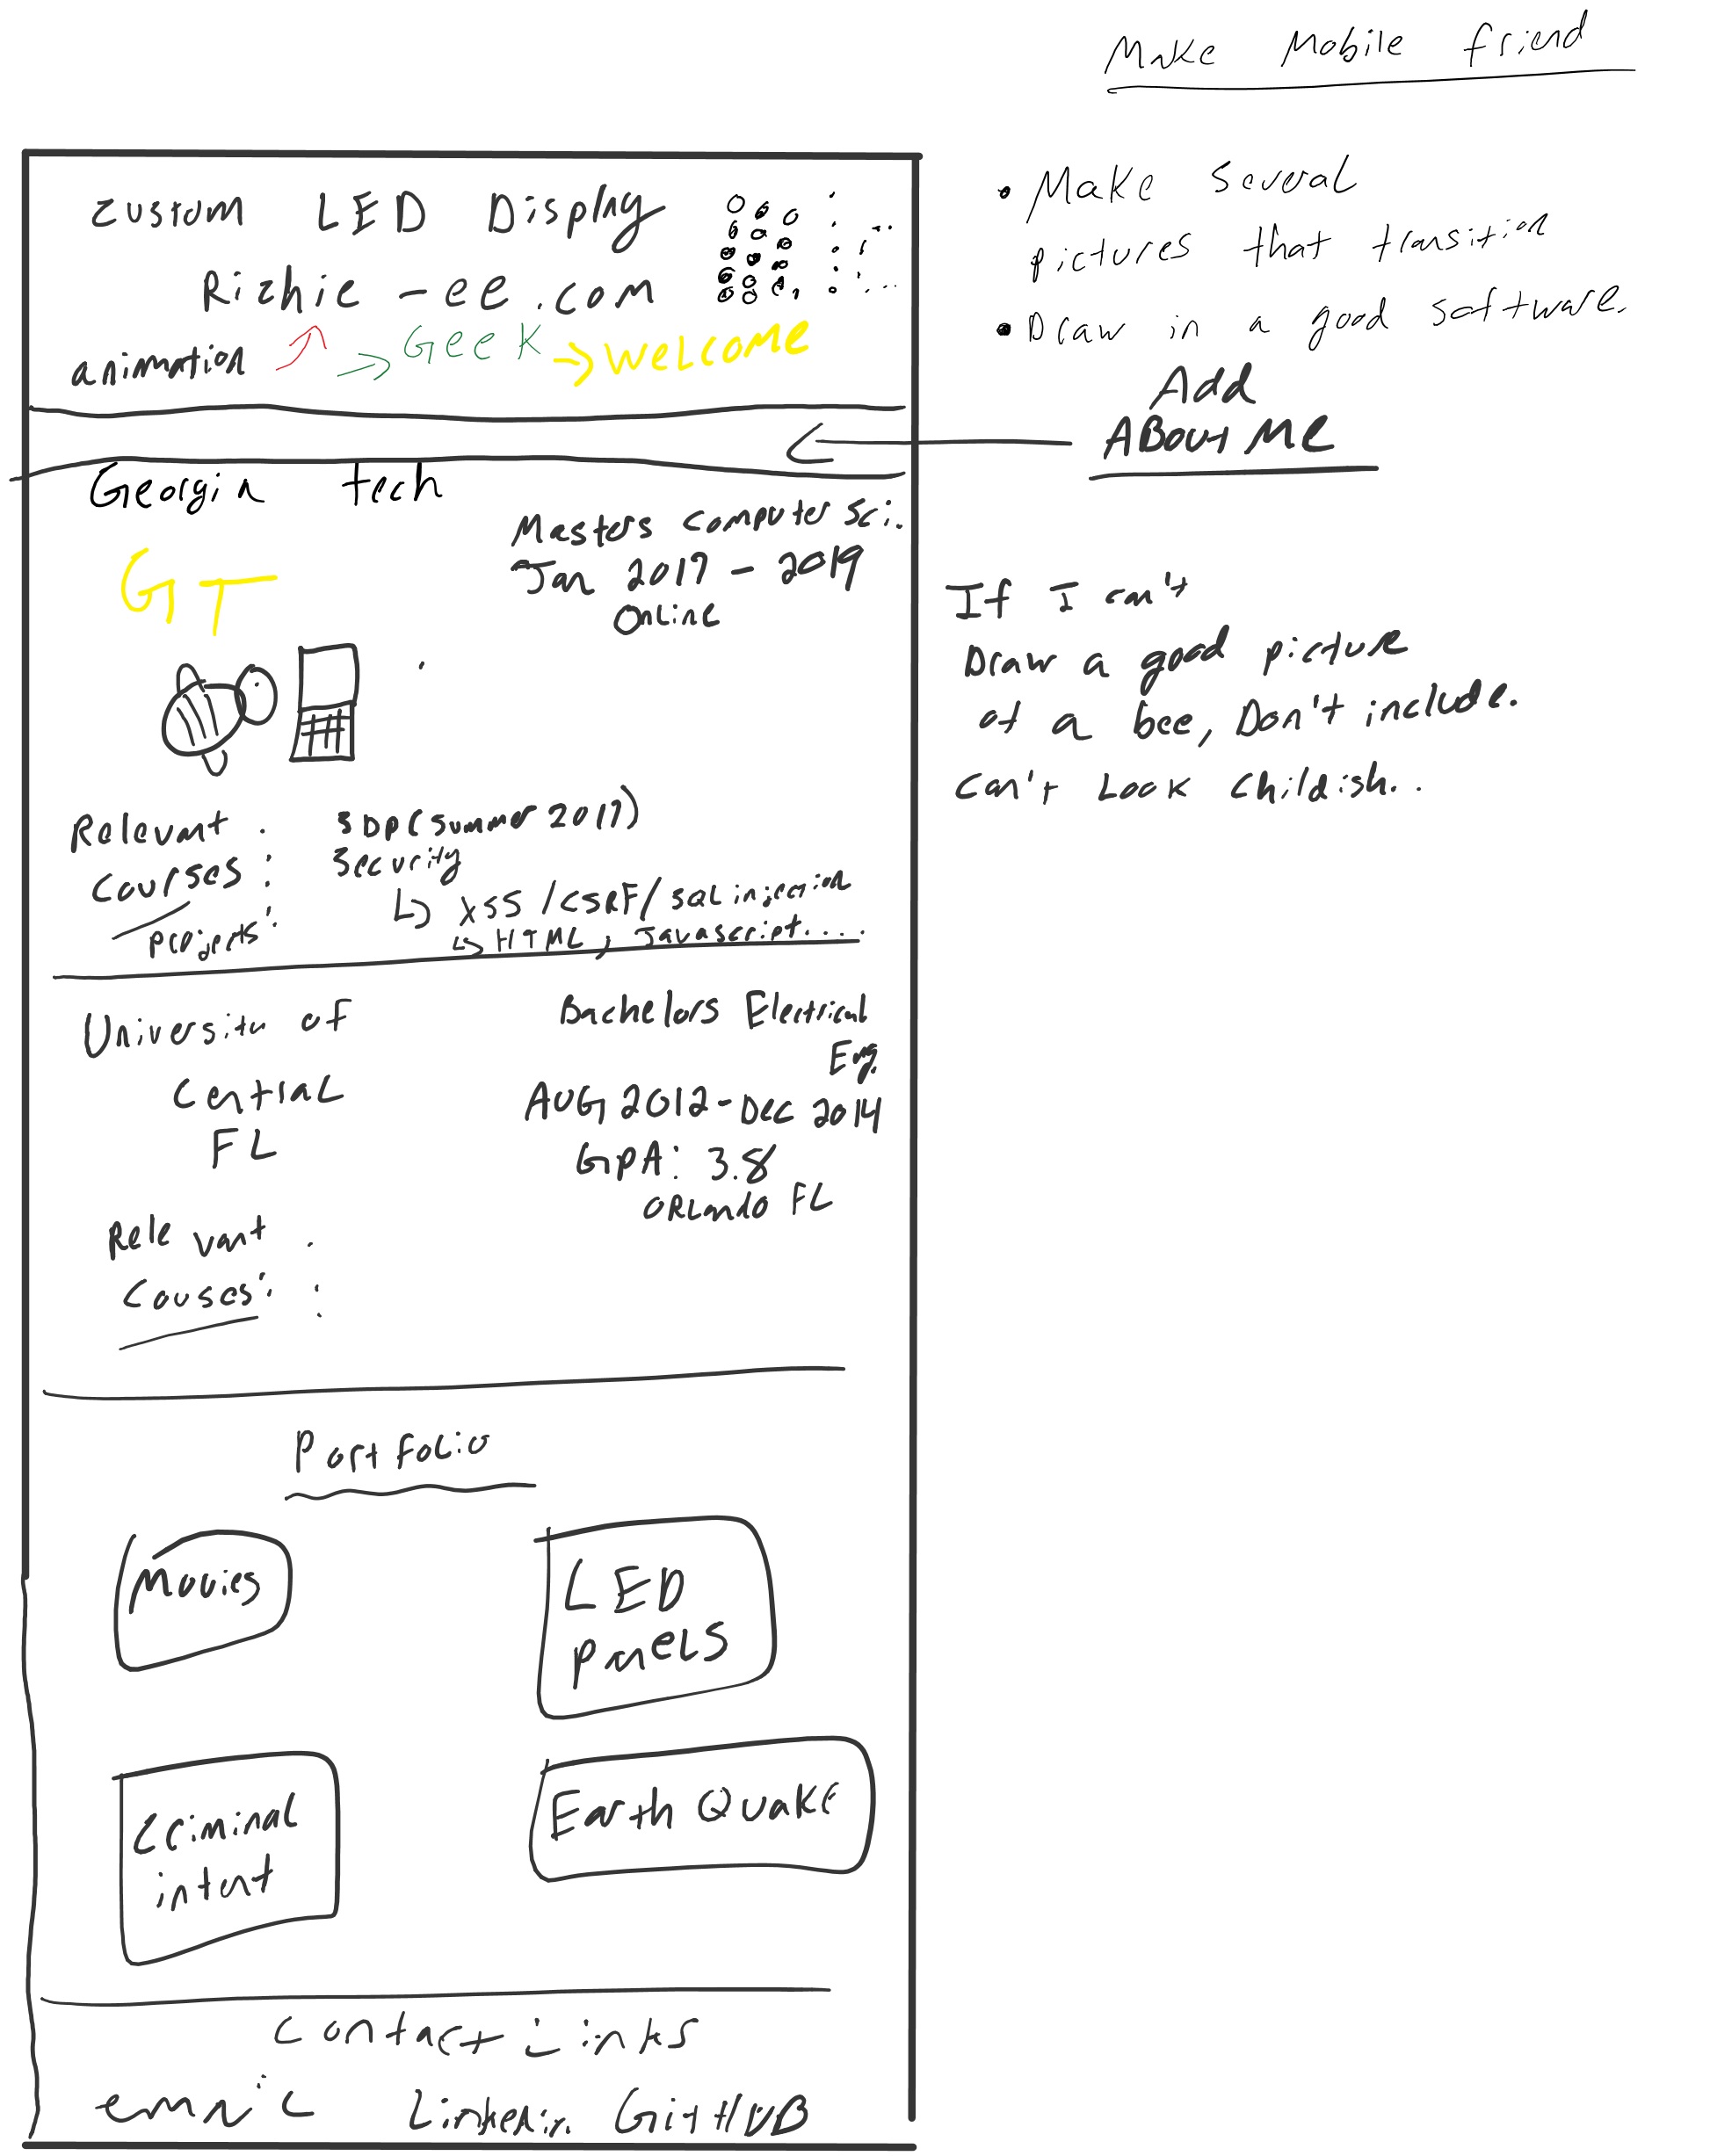 Make Mobile friend
custom LED Display
Richie-ee.com
animation → Geek → Welcome
• Make several
pictures that transition
• Draw in a good software.
Add
About Me
Georgia tech
GT
Masters computer sci.
Jan 2017 - 2019
Online
If I can't
Draw a good picture
of a bee, Don't include.
Can't Look childish..
Relevant
courses:
projects:
SDP (summer 2017)
Security
↳ XSS / CSRF / SQL injection
↳ HTML, Javascript....
University of
Central
FL
Bachelors Electrical
Eng.
AUG 2012 - Dec 2014
GPA: 3.8
Orlando FL
Relevant
Couses:
Portfolio
Movies
LED
Panels
Criminal
intent
Earth Quake
Contact Links
email Linkedin GitHUB